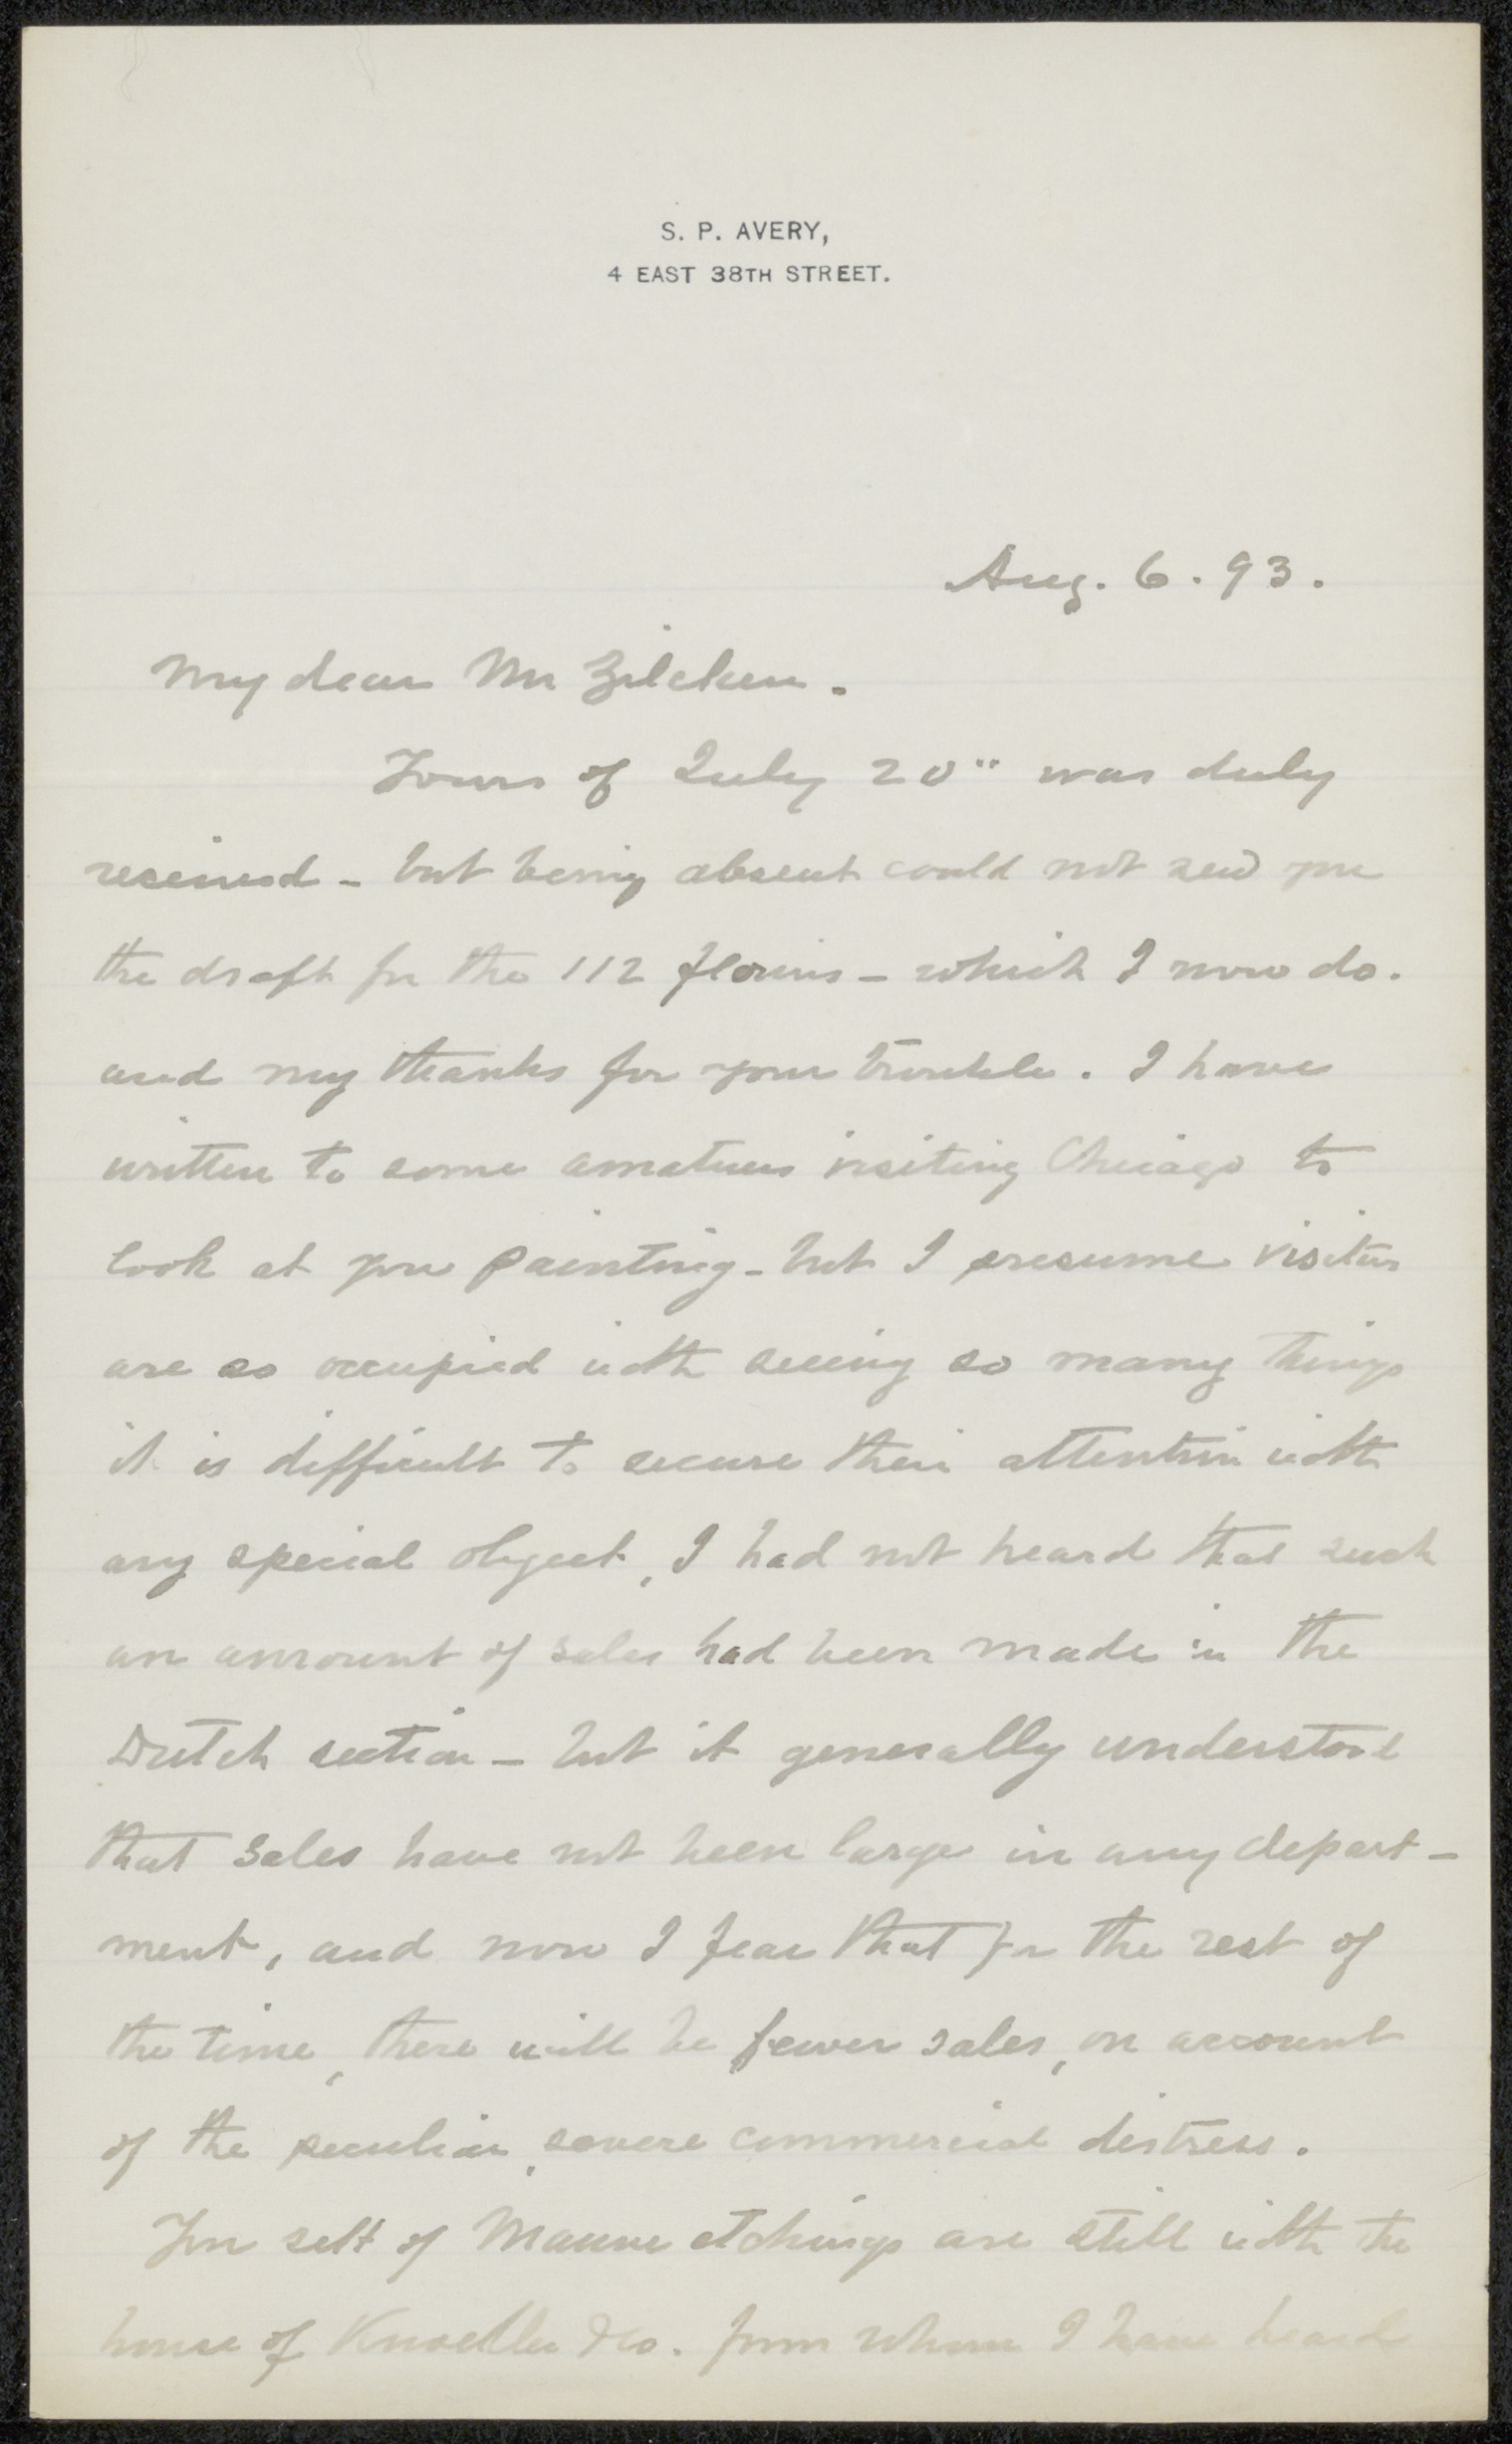 S. P. AVERY,
4 EAST 38TH STREET.
Aug. 6. 93.
My dear Mr Zilcken.
Yours of July 20" was duly
received - but being absent could not send you
the draft for the 112 florins - which I now do.
and my thanks for your trouble. I have
written to some amateurs visiting Chicago to
look at your painting - but I presume visitors
are so occupied with seeing so many things
it is difficult to secure their attention with
any special object, I had not heard that such
an amount of sales had been made in the
Dutch section - but it generally understood
that sales have not been large in any depart-
ment, and now I fear that for the rest of
the time, there will be fewer sales, on account
of the peculiar, severe commercial distress.
Your sett of Mauve etchings are still with the
house of Knoedler & Co. from whom I have heard